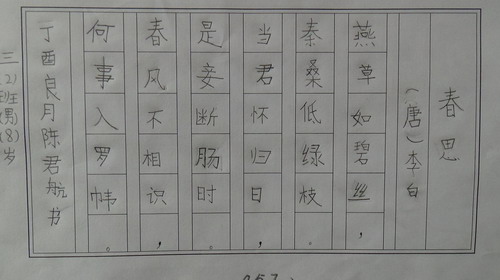 春思
（唐）李白
燕草如碧丝，
秦桑低绿枝。
当君怀归日，
是妾断肠时。
春风不相识，
何事入罗帏。
丁酉良月陈君航书
三(2)班(男)(8)岁